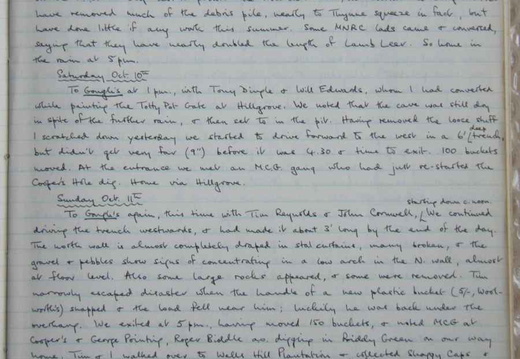 have removed much of the debris pile, nearly to Thynne squeeze in fact, but
have done little if any work this summer. Some MNRC lads came & conversed,
saying that they have nearly doubled the length of Lamb Leer. So home in
the rain at 5 pm.
Saturday Oct 10th
To Gough's at 1 pm, with Tony Dingle & Will Edwards, whom I had converted
while painting the Totty Pot Gate at Hillgrove. We noted that the cave was still dry
in spite of the further rain, & then set to in the pit. Having removed the loose stuff
I scratched down yesterday we started to drive forward to the west in a 6' deep trench,
but didn't get very far (9") before it was 4.30 & time to exit. 100 buckets
moved. At the entrance we met an M.C.G. gang who had just re-started the
Cooper's Hole dig. Home via Hillgrove.
Sunday Oct 11th
starting down c. noon.
To Gough's again, this time with Tim Reynolds & John Cornwell, We continued
driving the trench westwards, & had made it about 3' long by the end of the day.
The north wall is almost completely draped in stal curtains, many broken, & the
gravel & pebbles show signs of concentrating in a low arch in the N. wall, almost
at floor level. Also some large rocks appeared, & some were removed. Tim
narrowly escaped disaster when the handle of a new plastic bucket (5/-, Wool-
worth's) snapped & the load fell near him; luckily he was back under the
overhang. We exited at 5 pm, having moved 150 buckets, & noted MCG at
Cooper's & George Pointing, Roger Biddle a.o. digging in Briddy Green on our way
home. Tim & I walked over to Wells Hill Plantation & collected